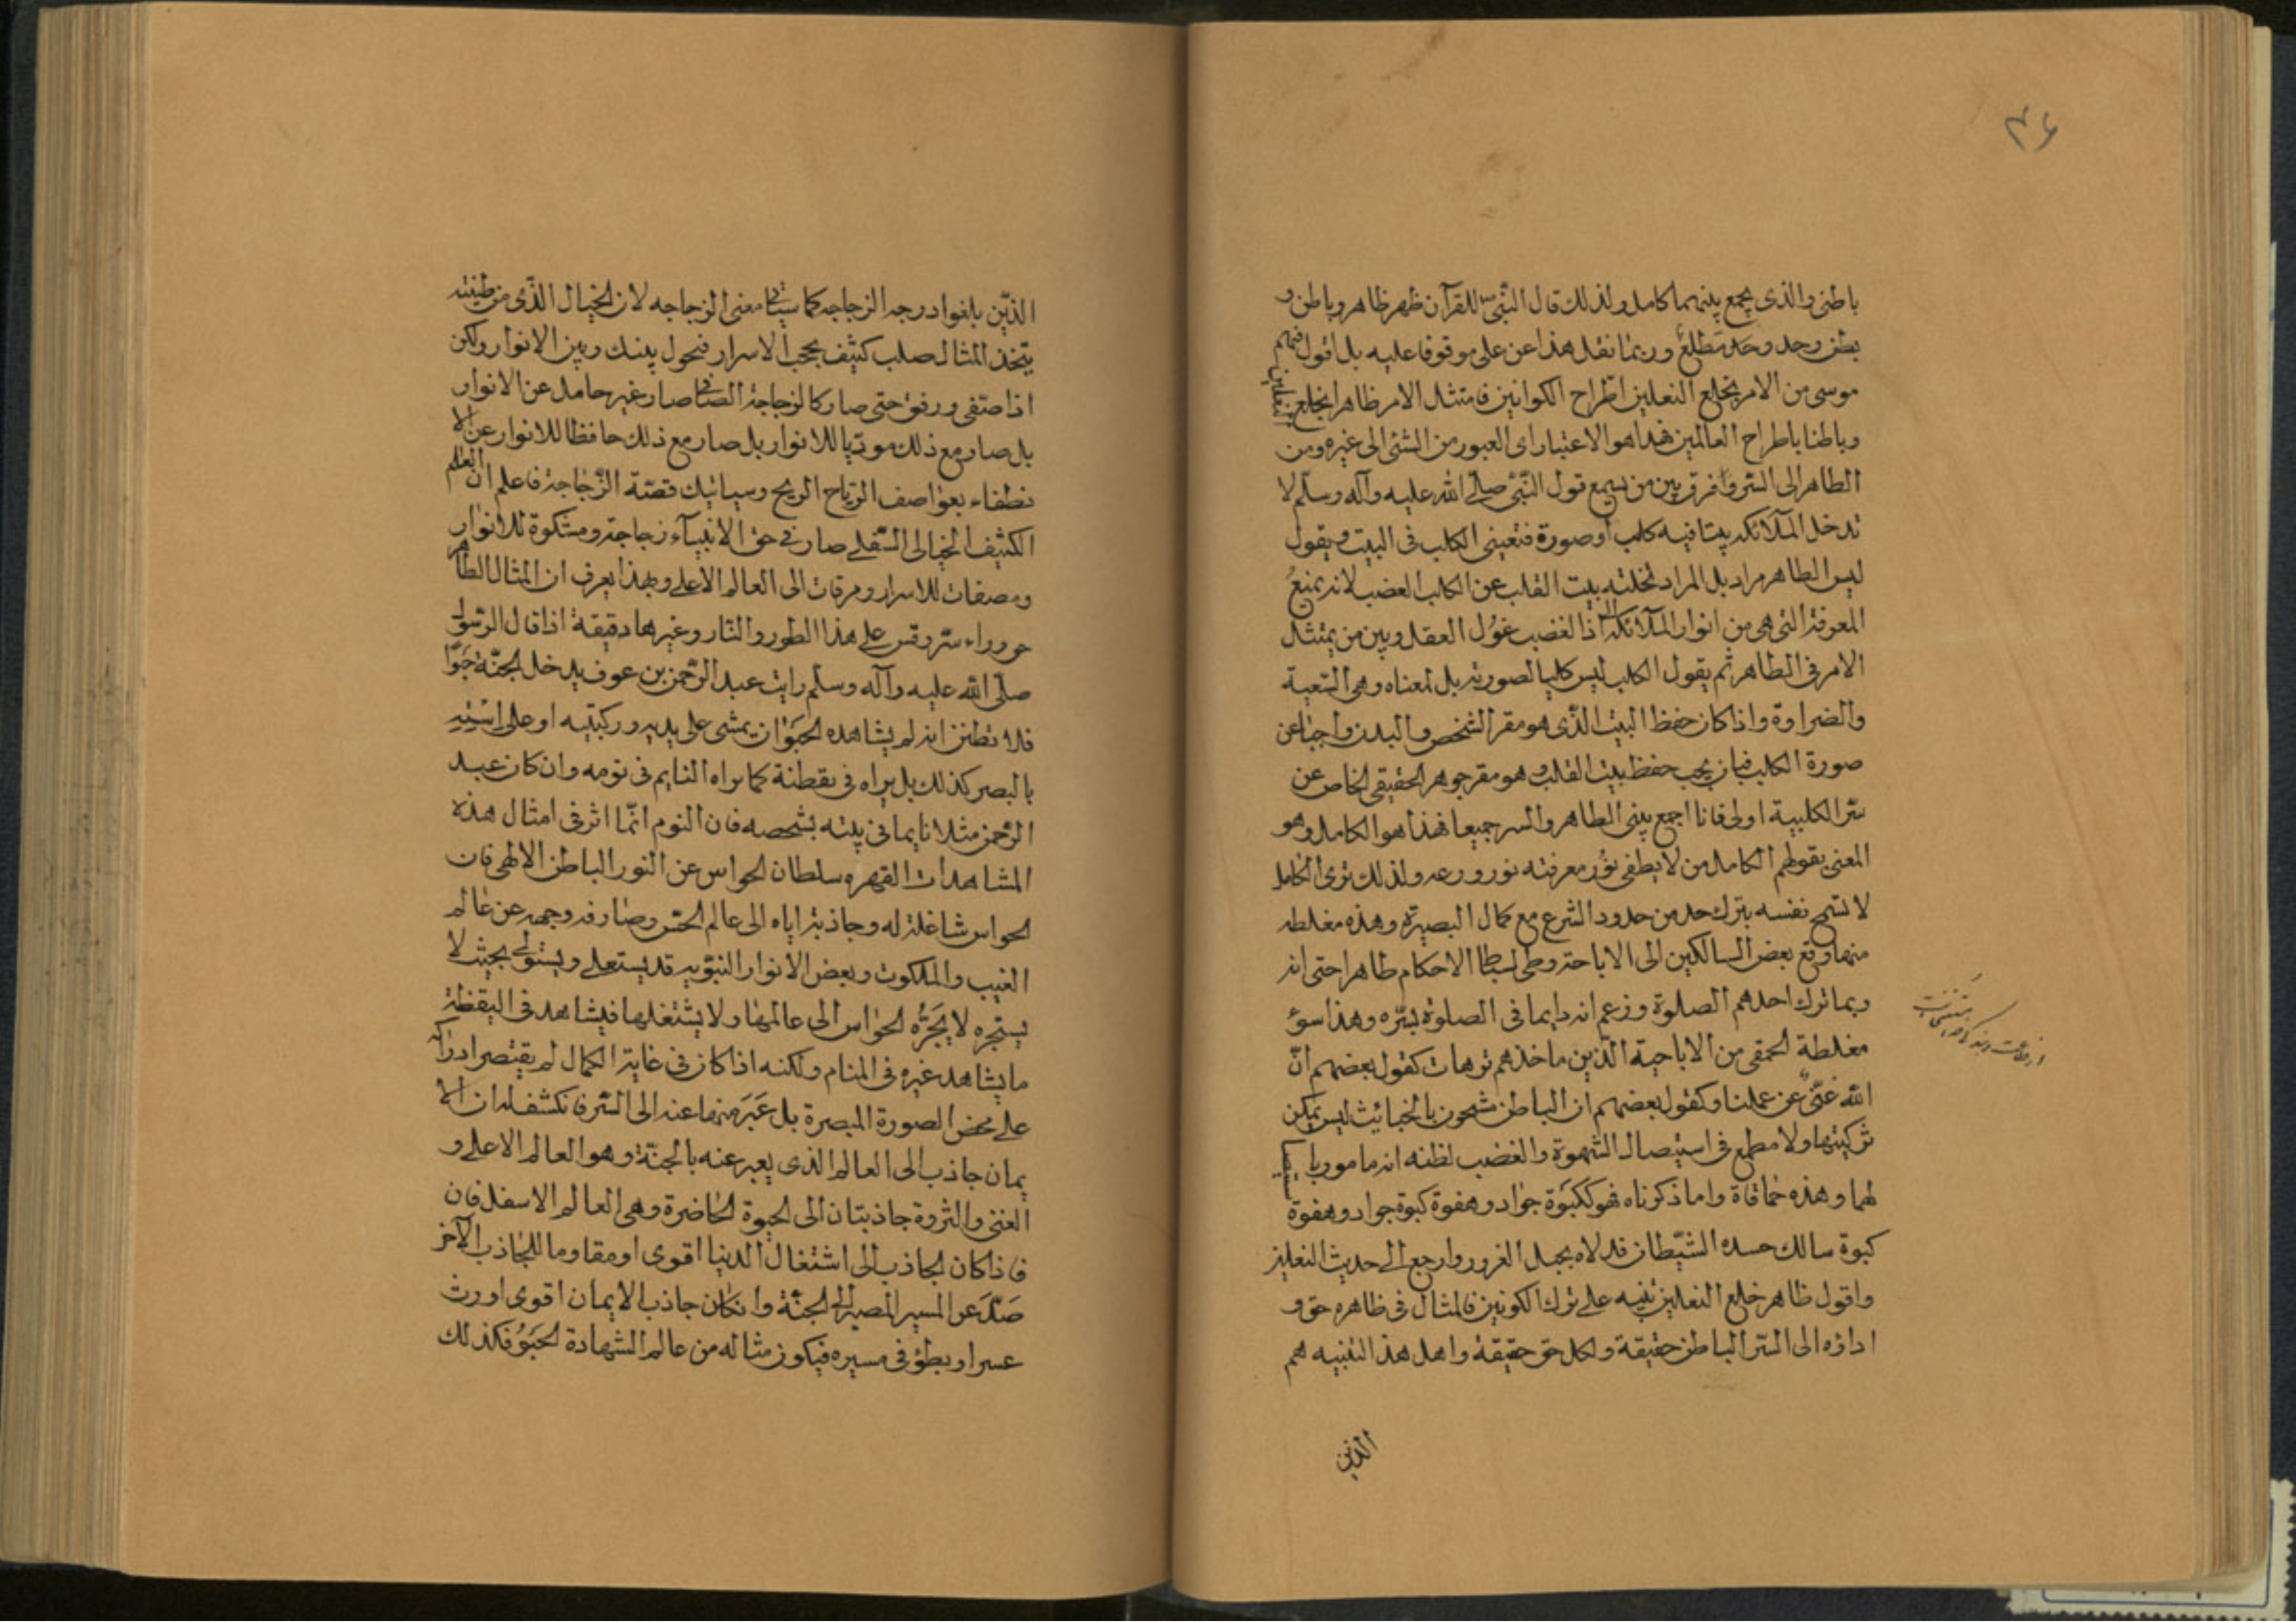 ٣٦
باطنى والذى يجمع بينهما كامل ولذلك قال النبى للقرآن ظهر ظاهر وباطن و
بطن وحد وحد مطلع وربما نقل هذا عن على موقوفا عليه بل اقول فهم
موسى من الامر بخلع النعلين اطراح الكوانين فامتثل الامر ظاهرا بخلع النعلين
وباطنا باطراح العالمين فهذا هو الاعتبار اى العبور من الشئ الى غيره ومن
الظاهر الى السر وافرق بين من يسمع قول النبى صلى الله عليه وآله وسلم لا
تدخل الملائكه بيتا فيه كلب او صورة فتعينى الكلب فى البيت ويقول
ليس الظاهر مراد بل المراد تخلته بيت القلب عن الكلب الغضب لانه يمنع
المعرفة التى هى من انوار الملائكه اذا لغضب غول العقل وبين من يمتثل
الامر فى الظاهر ثم يقول الكلب ليس كلبا لصورته بل لمعناه وهى السبعية
والضراوة واذا كان حفظ البيت الذى هو مقر الشخص والبدن واجبا عن
صورة الكلب فبان يجب حفظ بيت القلب وهو مقر جوهر الحقيقى الخاص عن
سر الكلبية اولى فانا اجمع بينى الظاهر والسر جميعا فهذا هو الكامل وهو
المعنى بقولهم الكامل من لا يطفى نور معرفته نور ورعه ولذلك ترى الكامل
لا تسمح نفسه بترك حد من حدود الشرع مع كمال البصيرة وهذه مغلطه
منها وقع بعض السالكين الى الاباحة وطى بساط الاحكام ظاهرا حتى انه
ربما ترك احدهم الصلوة وزعم انه دايما فى الصلوة بسره وهذا سوى
مغلطة الحمقى من الاباحية الذين ماخذهم ترهات كقول بعضهم ان
الله غنى عن عملنا وكقول بعضهم ان الباطن مشحون بالخبائيث ليس يمكن
تزكيتها ولا مطمع فى استيصال الشهوة والغضب لظنه انه مامور باستيصا
لهما وهذه حماقاة واما ذكرناه فهو ككبوة جواد وهفوة كبوة جواد وهفوة
كبوة سالك حسده الشيطان فدلاه بحبل الغرور وارجع الى حديث النعلين
واقول ظاهر خلع النعلين تنبيه على ترك الكونين فالمثال فى ظاهره حق و
اداؤه الى السر الباطن حقيقة ولكل حق حقيقة واهل هذا التنبيه هم
الذين
الذين بلغوا درجه الزجاجه كما سياتى معنى الزجاجه لان الخيال الذى من طينته
يتخذ المثال صلب كثيف يحجب الاسرار فتحول بينك وبين الانوار ولكن
اذا صتفى ورقق حتى صار كالزجاجة الصافى صار غير حامل عن الانوار
بل صار مع ذلك موديا للانوار بل صار مع ذلك حافظا للانوار عن الا
نطفاء بعواصف الرياح الريح وسياتيك قصة الزجاجة فاعلم ان العالم
الكثيف الخيالى السفلى صار فى حق الانبياء زجاجة ومشكوة للانوار
ومصفات للاسرار ومرقات الى العالم الاعلى وبهذا يعرف ان المثال الظاهر
حق وراء سر وقس على هذا الطور والنار وغيرها دقيقة اذا قال الرسول
صلى الله عليه وآله وسلم رايت عبد الرحمن بن عوف يدخل الجنة حبوا
فلا تظنن انه لم يشاهده الحبوان يمشى على يديه وركبتيه او على استيه
بالبصر كذلك بل يراه فى يقظته كما يراه النايم فى نومه وان كان عبد
الرحمن مثلا نايما فى بيته بشخصه فان النوم انما اثر فى امثال هذه
المشاهدات القهره سلطان الحواس عن النور الباطن الالهى فان
الحواس شاغلة له وجاذبة اياه الى عالم الحس وصارفه وجهه عن عالم
الغيب والملكوت وبعض الانوار النبويه قد يستعلى ويستولى بحيث لا
يستجره لا يجره الحواس الى عالمها ولا يشتغلها فيشاهد فى اليقظة
ما يشاهد غيره فى المنام ولكنه اذا كان فى غاية الكمال لم يقتصر ادراكه
على محض الصورة المبصرة بل عبر منها عنه الى السر فانكشف له ان الا
يمان جاذب الى العالم الذى يعبر عنه بالجنة وهو العالم الاعلى و
الغنى والثروة جاذبتان الى الحيوة الحاضرة وهى العالم الاسفل فان
فاذا كان الجاذب الى اشتغال الدنيا اقوى او مقاوما للجاذب الآخر
صد عن المسير المصير الى الجنة وان كان جاذب الايمان اقوى اورث
عسرا وبطؤ فى مسيره فيكون مثاله من عالم الشهادة الحبو فكذلك